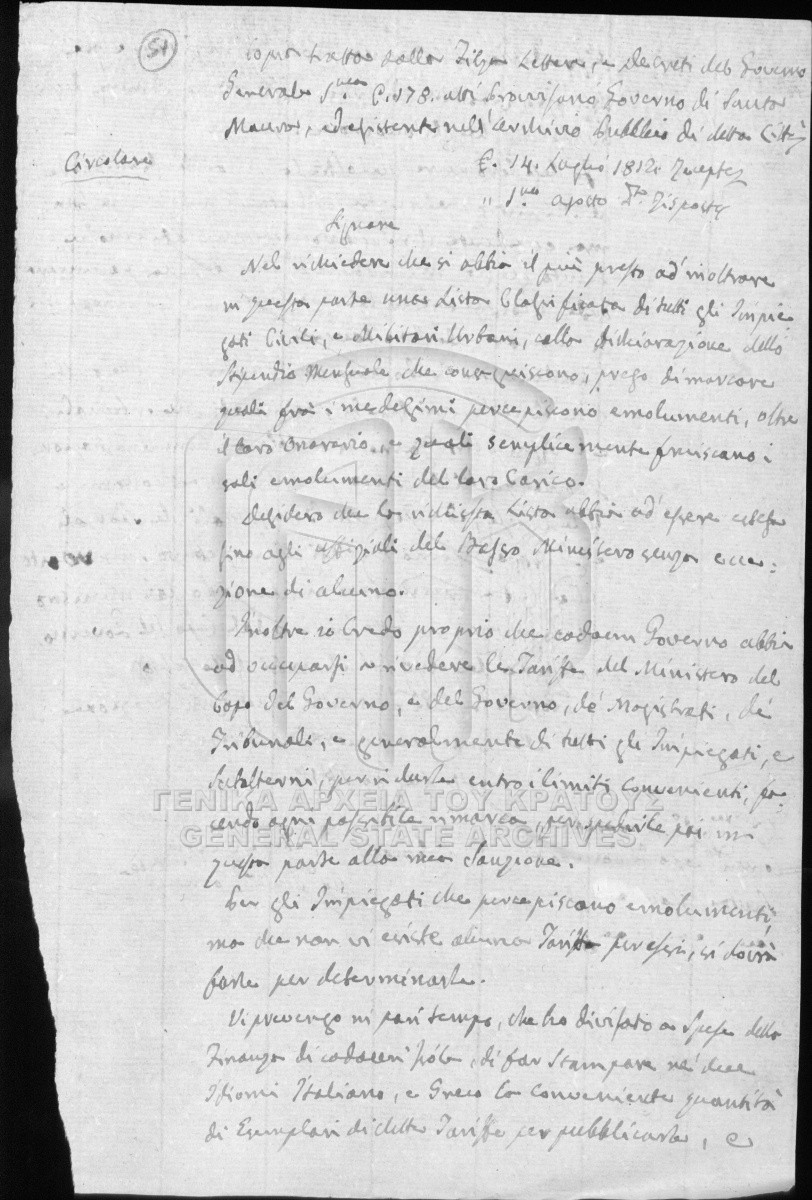 51
Copia tratta dalla Filza Lettere, e Decreti del Governo
Generale C. 178. Provisorio Governo di Santa
Maura, ed esistente nell'Archivio Pubblico di detta Città
Circolare
14. Luglio 1812.
Agosto
Signore
Nel richiedere che si abbia il più presto ad inoltrare
in questa parte una Lista Classificata di tutti gli Impie
gati Civili, e Militari Urbani, colla dichiarazione dello
Stipendio Mensuale che conseguiscono, prego di marcare
quali frà i medesimi percepiscono emolumenti, oltre
il loro Onorario, e quali semplicemente fruiscano i
soli emolumenti del loro Carico.
Desidero che la richiesta Lista abbia ad essere estesa
fino agli uffiziali del Basso Ministero senza ecce:
zione di alcuno.
Inoltre io Credo proprio che cadaun Governo abbia
ad occuparsi a rivedere le Tariffe del Ministero del
Capo del Governo, e del Governo, de' Magistrati, de'
Tribunali, e generalmente di tutti gli Impiegati, e
Subalterni, per ridurle entro i limiti convenienti, fa:
cendo ogni possibile rimarca, per spedirle poi in
questa parte alla mia Sanzione.
Per gli Impiegati che percepiscono emolumenti,
ma che non vi esiste alcuna Tariffa per essi, si dovrà
farla per determinarla.
Vi prevengo in pari tempo, che ho divisato a Spese della
Finanza di cadaun' Isola, di far Stampare nei due
Idiomi Italiano, e Greco la conveniente quantità
di Esemplari di dette Tariffe per pubblicarle, e
ΓΕΝΙΚΑ ΑΡΧΕΙΑ ΤΟΥ ΚΡΑΤΟΥΣ
GENERAL STATE ARCHIVES